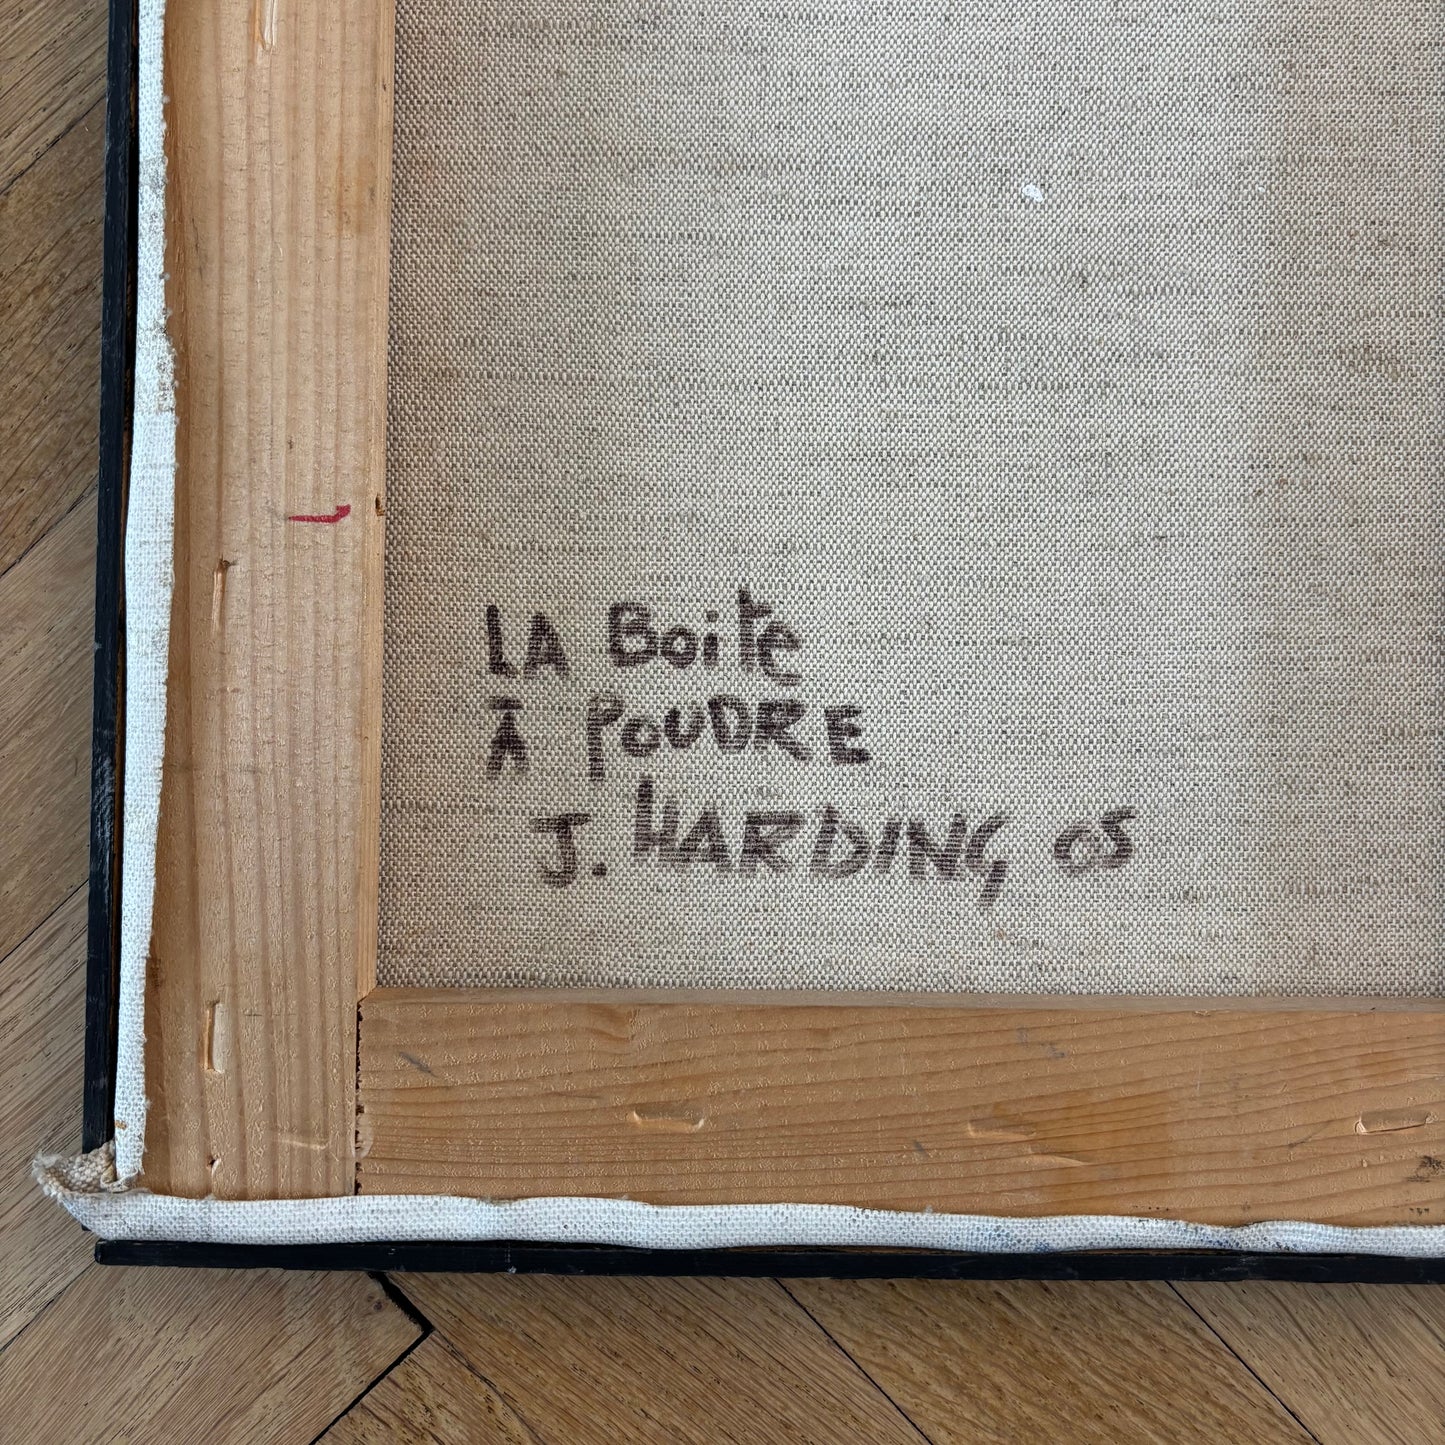 LA Boite
À POUDRE
J. HARDING 05